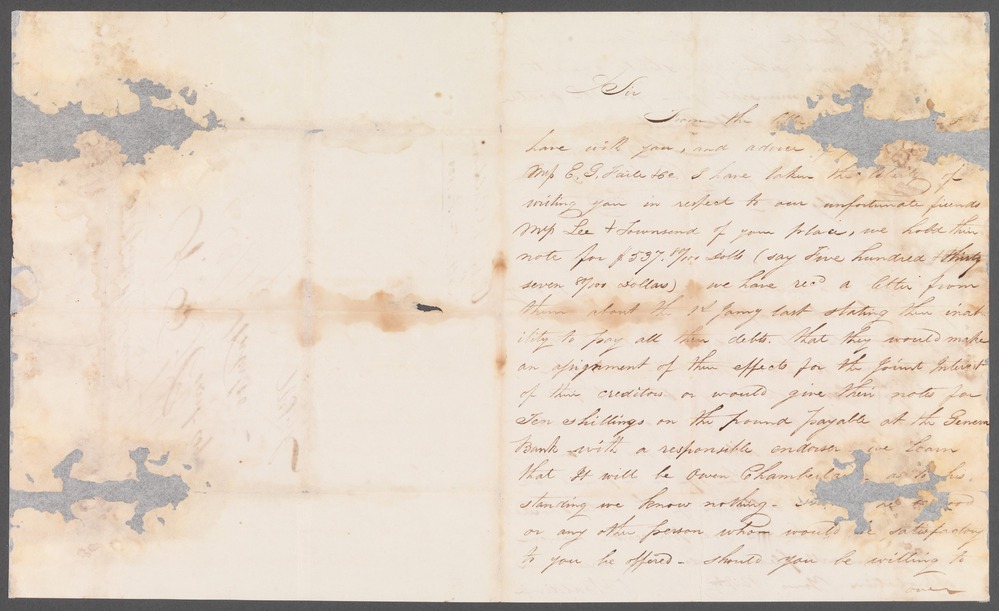 Sir
From the
have with you, and advice
Mess E. G. Faile & Co. I have taken the liberty of
writing you in respect to our unfortunate friends
Mess Lee & Townsend of your place, we hold their
note for $537.87/100 dolls (say Five hundred & thirty
seven 87/100 Dollars) we have recd a letter from
them about the 1st Jany last stating their inab
ility to pay all their debts. that they would make
an assignment of their effects for the Joint Interest
of their creditors or would give their notes for
Ten shillings on the pound payable at the Geneva
Bank with a responsible endorser we learn
that It will be Owen Chamberlain his
standing we know nothing -
or any other person whom would be satisfactory
to you be offered - should you be willing to
over